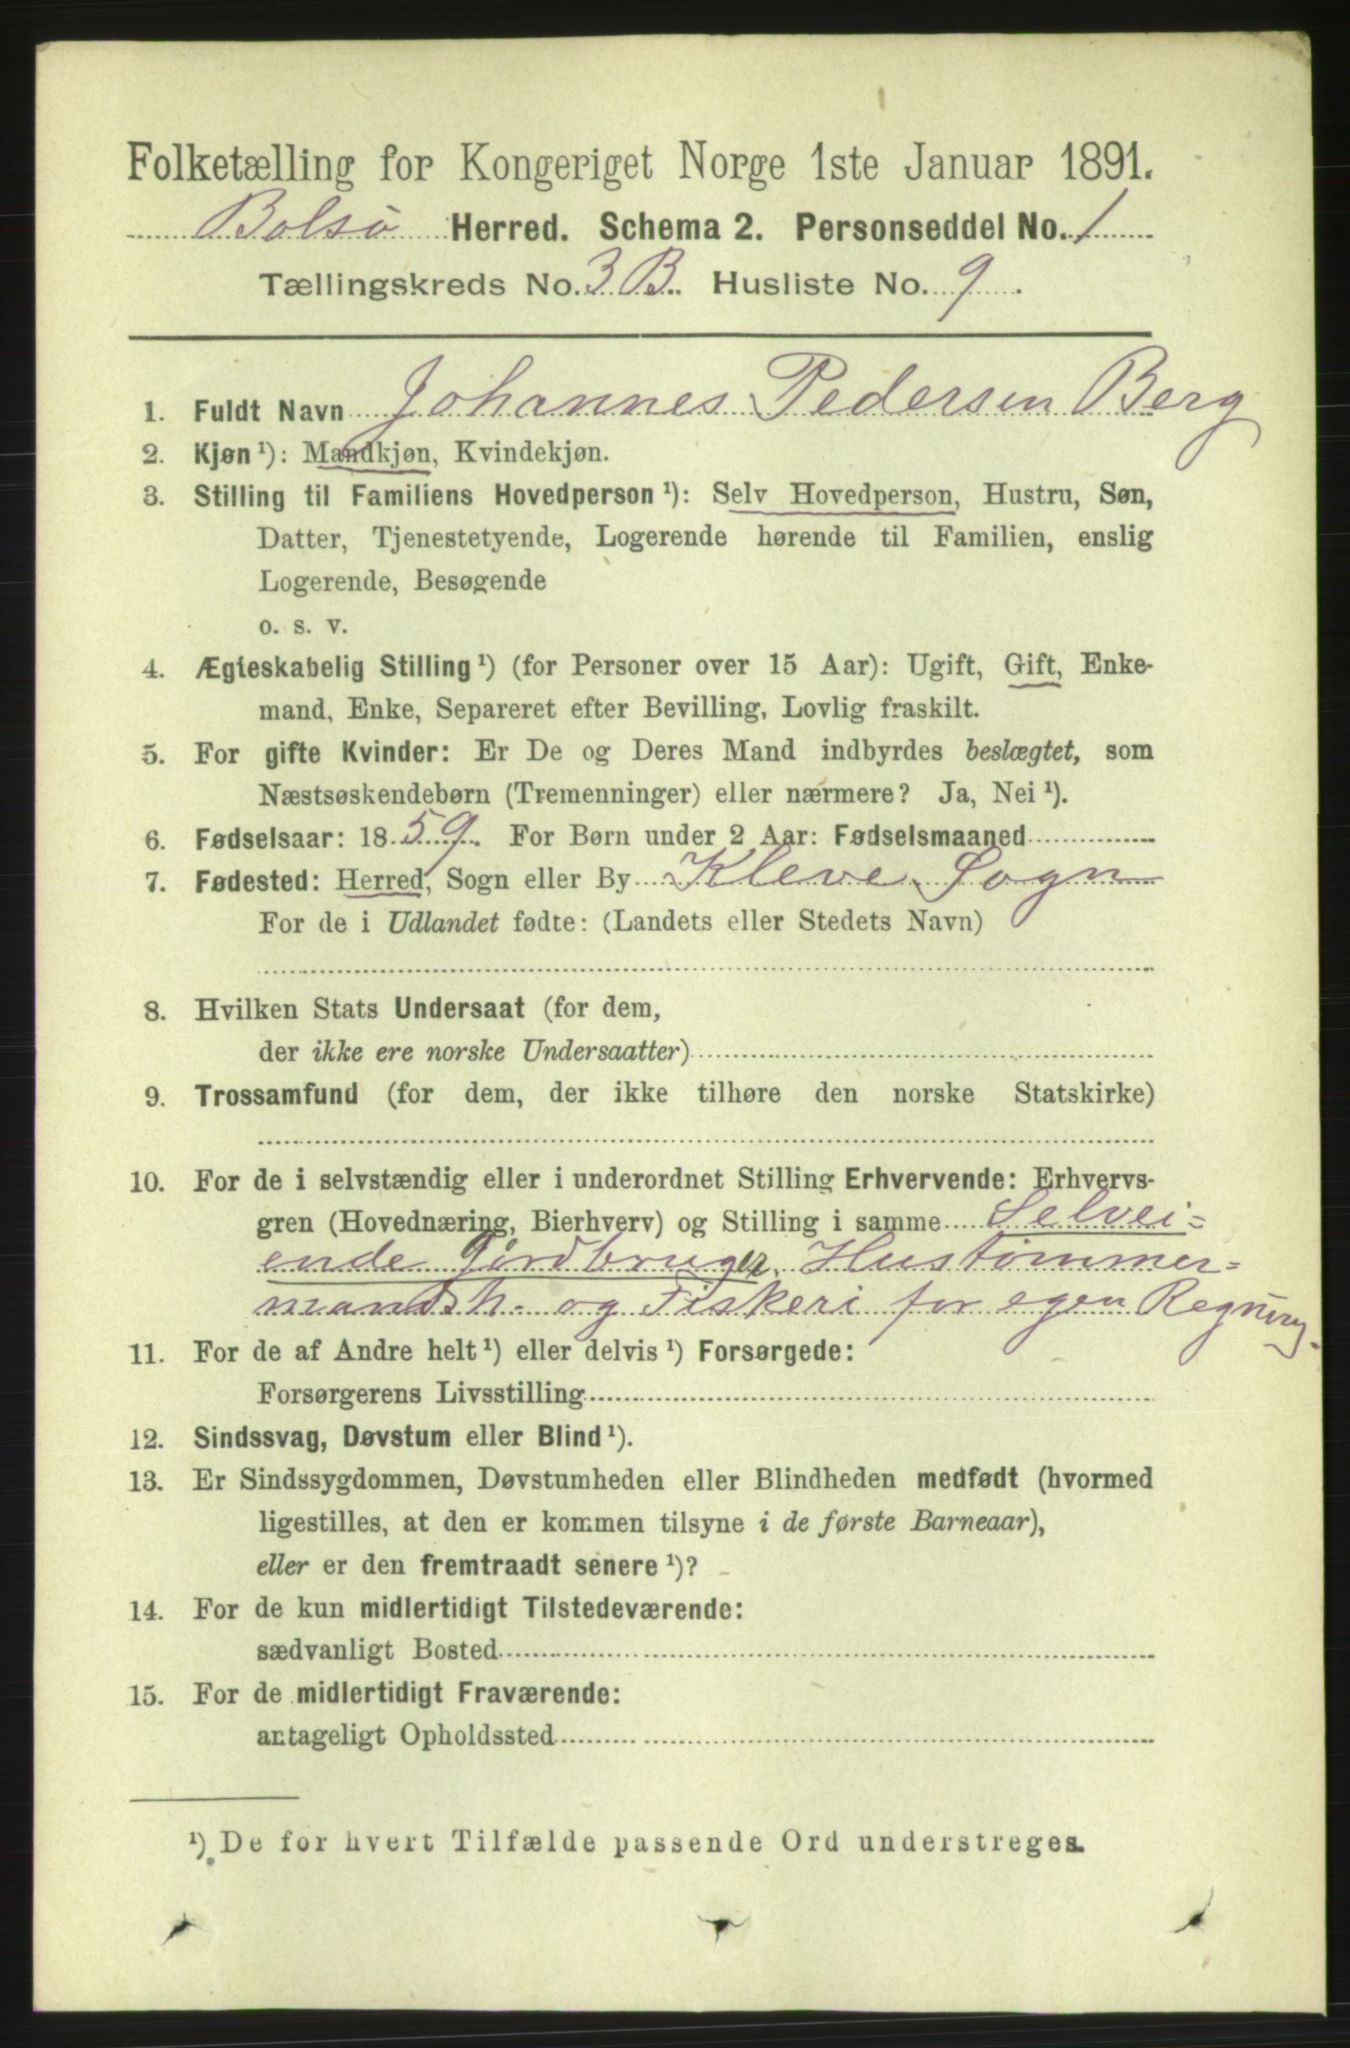 Folketælling for Kongeriget Norge 1ste Januar 1891.
Bolsø Herred. Schema 2. Personseddel No. 1
Tællingskreds No. 3 B. Husliste No. 9.
1. Fuldt Navn Johannes Pedersen Berg
2. Kjøn ¹): Mandkjøn, Kvindekjøn.
3. Stilling til Familiens Hovedperson ¹): Selv Hovedperson, Hustru, Søn,
Datter, Tjenestetyende, Logerende hørende til Familien, enslig
Logerende, Besøgende
o. s. v.
4. Ægteskabelig Stilling ¹) (for Personer over 15 Aar): Ugift, Gift, Enke-
mand, Enke, Separeret efter Bevilling, Lovlig fraskilt.
5. For gifte Kvinder: Er De og Deres Mand indbyrdes beslægtet, som
Næstsøskendebørn (Tremenninger) eller nærmere? Ja, Nei ¹).
6. Fødselsaar: 1859. For Børn under 2 Aar: Fødselsmaaned
7. Fødested: Herred, Sogn eller By Kleve Sogn
For de i Udlandet fødte: (Landets eller Stedets Navn)
8. Hvilken Stats Undersaat (for dem,
der ikke ere norske Undersaatter)
9. Trossamfund (for dem, der ikke tilhøre den norske Statskirke)
10. For de i selvstændig eller i underordnet Stilling Erhvervende: Erhvervs-
gren (Hovednæring, Bierhverv) og Stilling i samme Selvei=
ende Gårdbruger, Hustømmer=
mandsh. og Fiskeri for egen Regning.
11. For de af Andre helt ¹) eller delvis ¹) Forsørgede:
Forsørgerens Livsstilling
12. Sindssvag, Døvstum eller Blind ¹).
13. Er Sindssygdommen, Døvstumheden eller Blindheden medfødt (hvormed
ligestilles, at den er kommen tilsyne i de første Barneaar),
eller er den fremtraadt senere ¹)?
14. For de kun midlertidigt Tilstedeværende:
sædvanligt Bosted
15. For de midlertidigt Fraværende:
antageligt Opholdssted
¹) De for hvert Tilfælde passende Ord understreges.